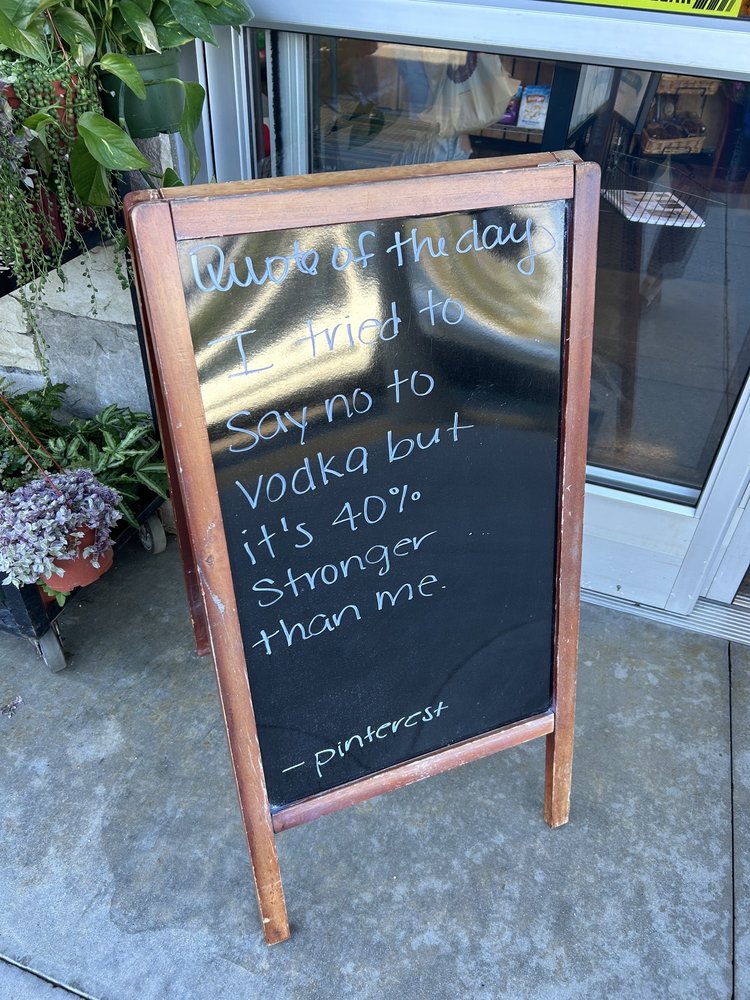 Quote of the day
I tried to
Say no to
vodka but
it's 40%
Stronger
than me.
- pinterest